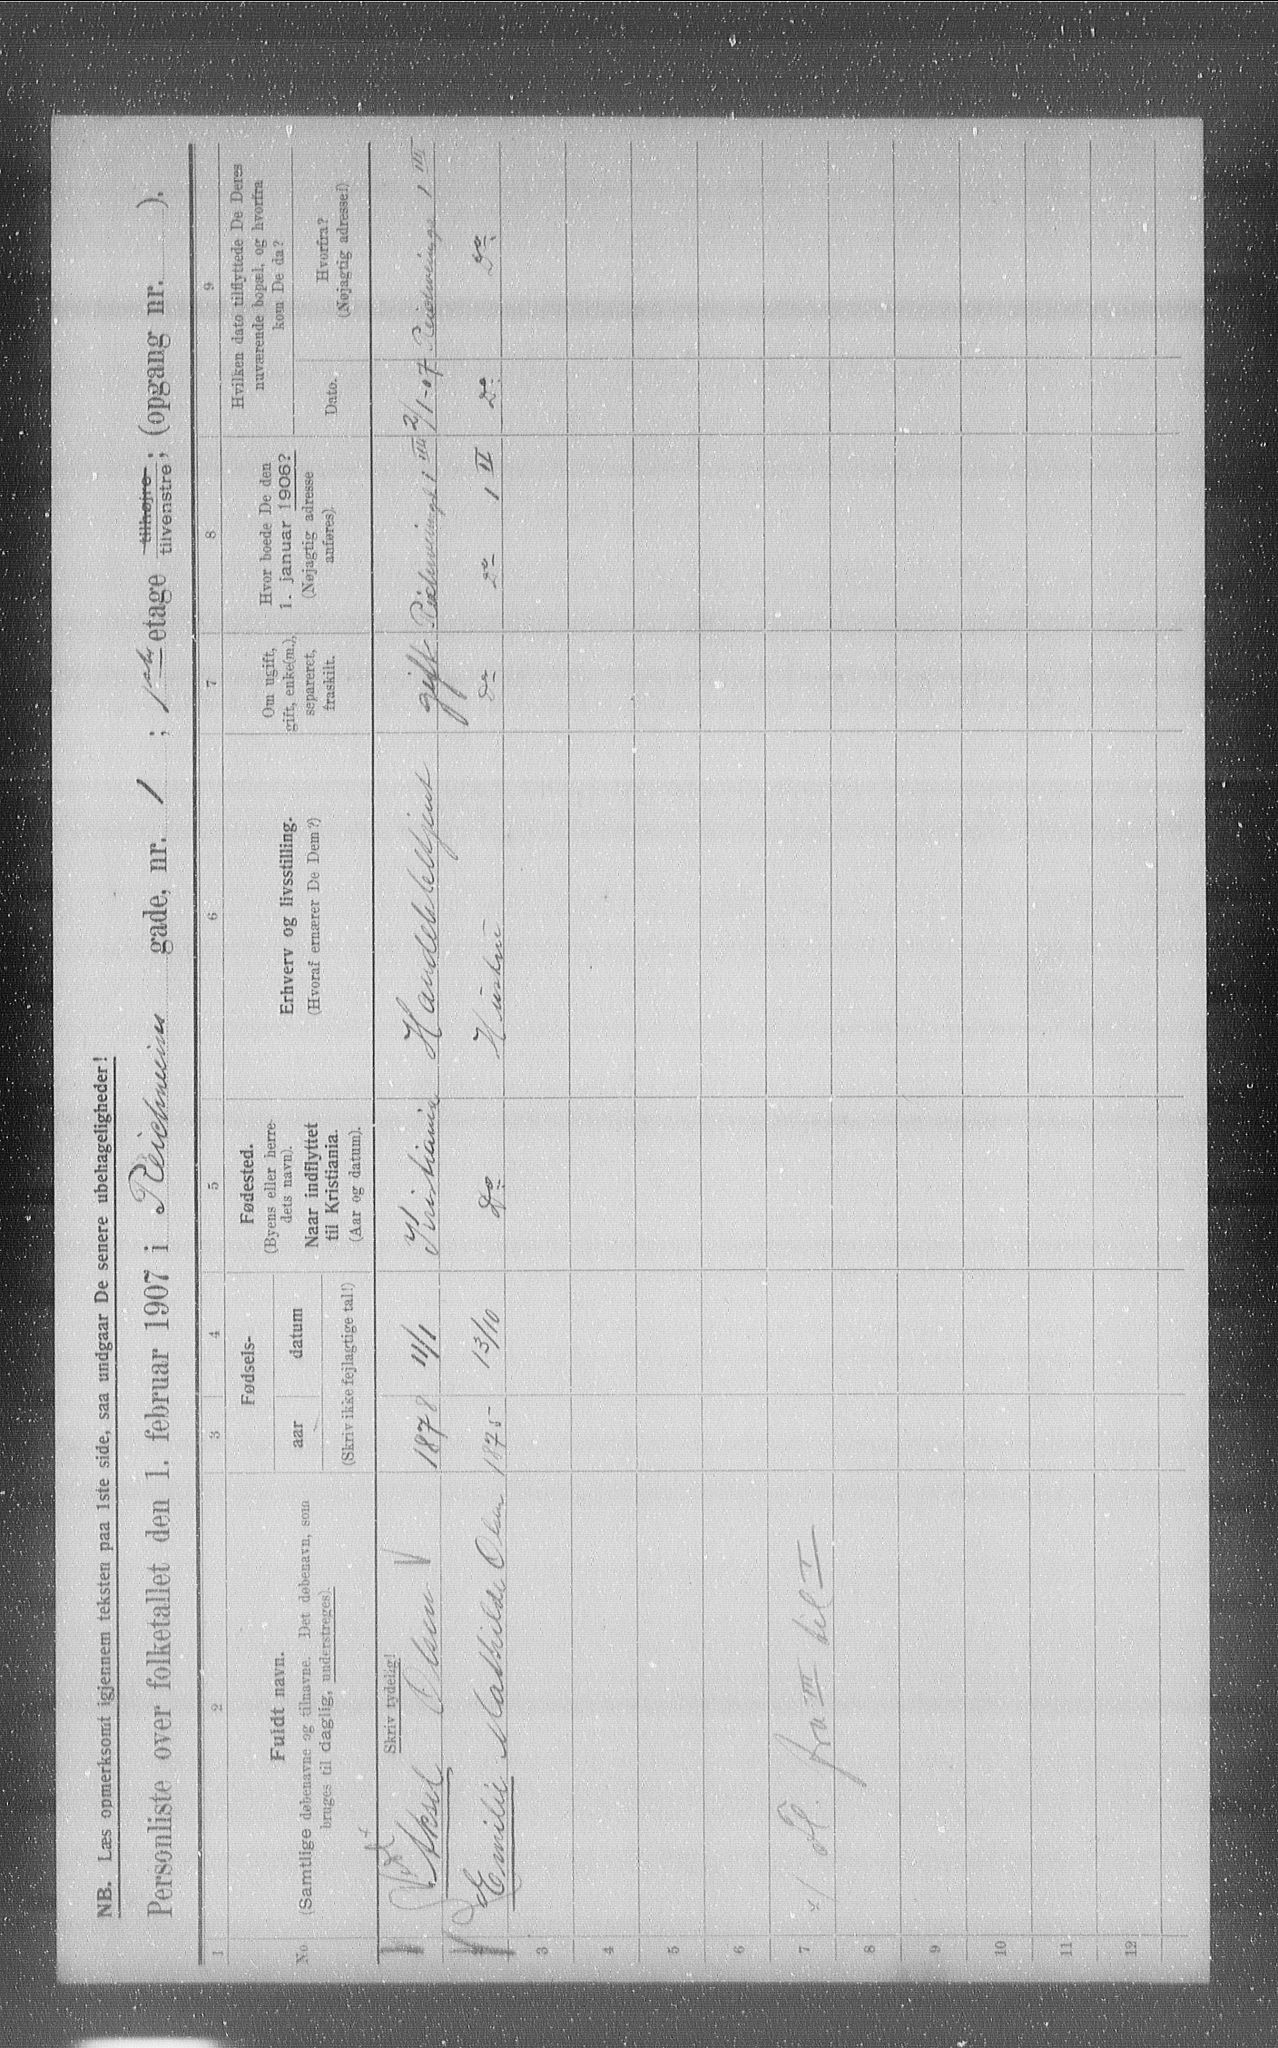 NB. Læs opmerksomt igjennem teksten paa 1ste side, saa undgaar De senere ubehageligheder!
Personliste over folketallet den 1. februar 1907 i Reichweins gade, nr. 1 ; 1ste etage tilhøjre tilvenstre; (opgang nr. ).
1 2 3 4 5 6 7 8 9
No
Fuldt navn.
(Samtlige døbenavne og tilnavne. Det døbenavn, som
bruges til daglig, understreges).
Fødsels-
aar datum
(Skriv ikke fejlagtige tal!)
Fødested.
(Byens eller herre-
dets navn).
Naar indflyttet
til Kristiania.
(Aar og datum).
Erhverv og livsstilling.
(Hvoraf ernærer De Dem?)
Om ugift,
gift, enke(m.),
separeret,
fraskilt.
Hvor boede De den
1. januar 1906?
(Nøjagtig adresse
anføres).
Hvilken dato tilflyttede De Deres
nuværende bopæl, og hvorfra
kom De da?
Dato.
Hvorfra?
(Nøjagtig adresse!)
Skriv tydelig!
1 Aksel Olsen 1878 11/1 Kristiania Handelsbetjent gift Reichweinsgd 1 III 2/1-07 Reichweinsg 1 III
2 Emilie Mathilde Olsen 1875 13/10 Do Hustru Do Do 1 II Do Do
3
4
5
6
7 fra III til I
8
9
10
11
12